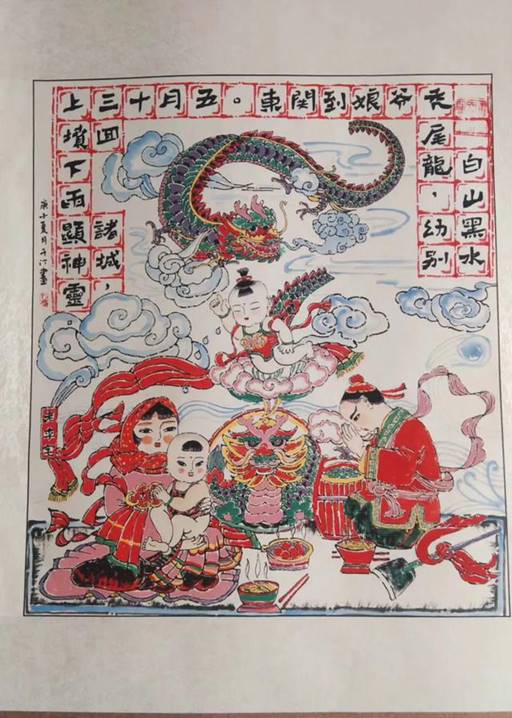 白山黑水
秃尾龍，幼别
爷娘到関東。五月十
三回諸城，
上墳下雨顯神靈
庚子夏月
畫